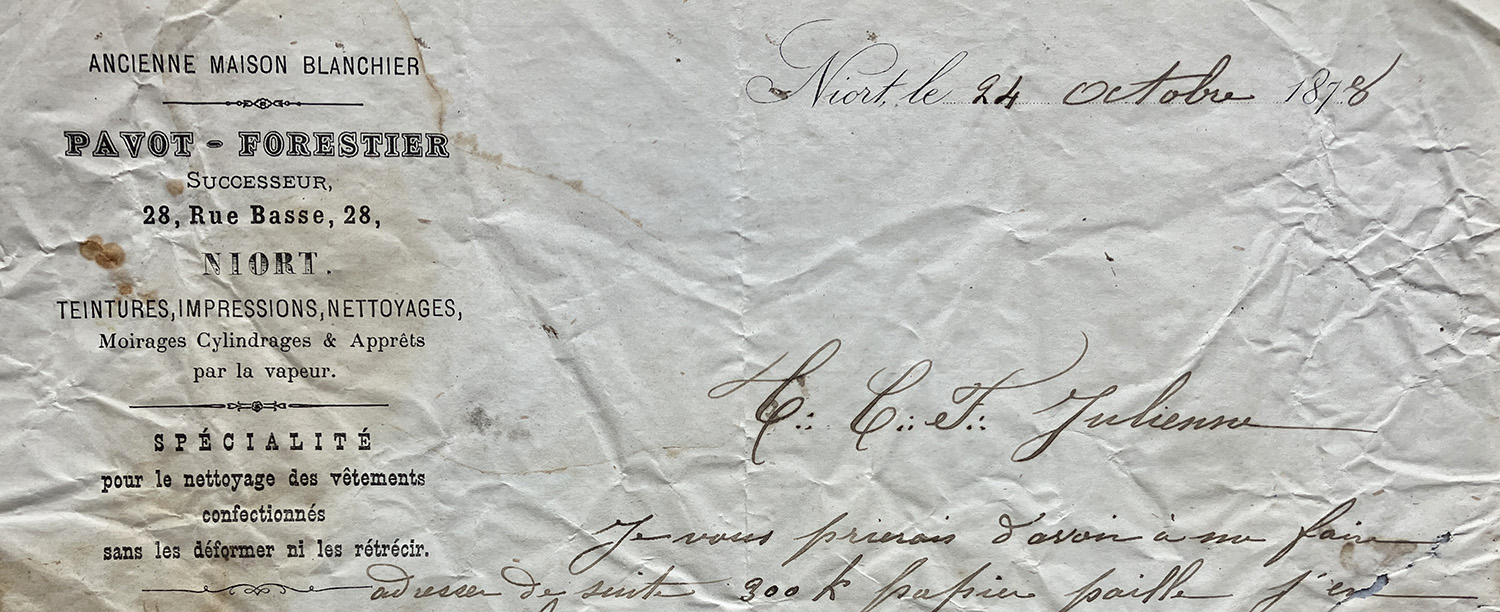 ANCIENNE MAISON BLANCHIER
PAVOT - FORESTIER
SUCCESSEUR,
28, Rue Basse, 28,
NIORT.
TEINTURES, IMPRESSIONS, NETTOYAGES,
Moirages Cylindrages & Apprêts
par la vapeur.
SPÉCIALITÉ
pour le nettoyage des vêtements
confectionnés
sans les déformer ni les rétrécir.
Niort, le 24 Octobre 1878
T.: C.: F.: Julienne
Je vous prierais d'avoir à me faire
adresser de suite 300 k papier paille j'en